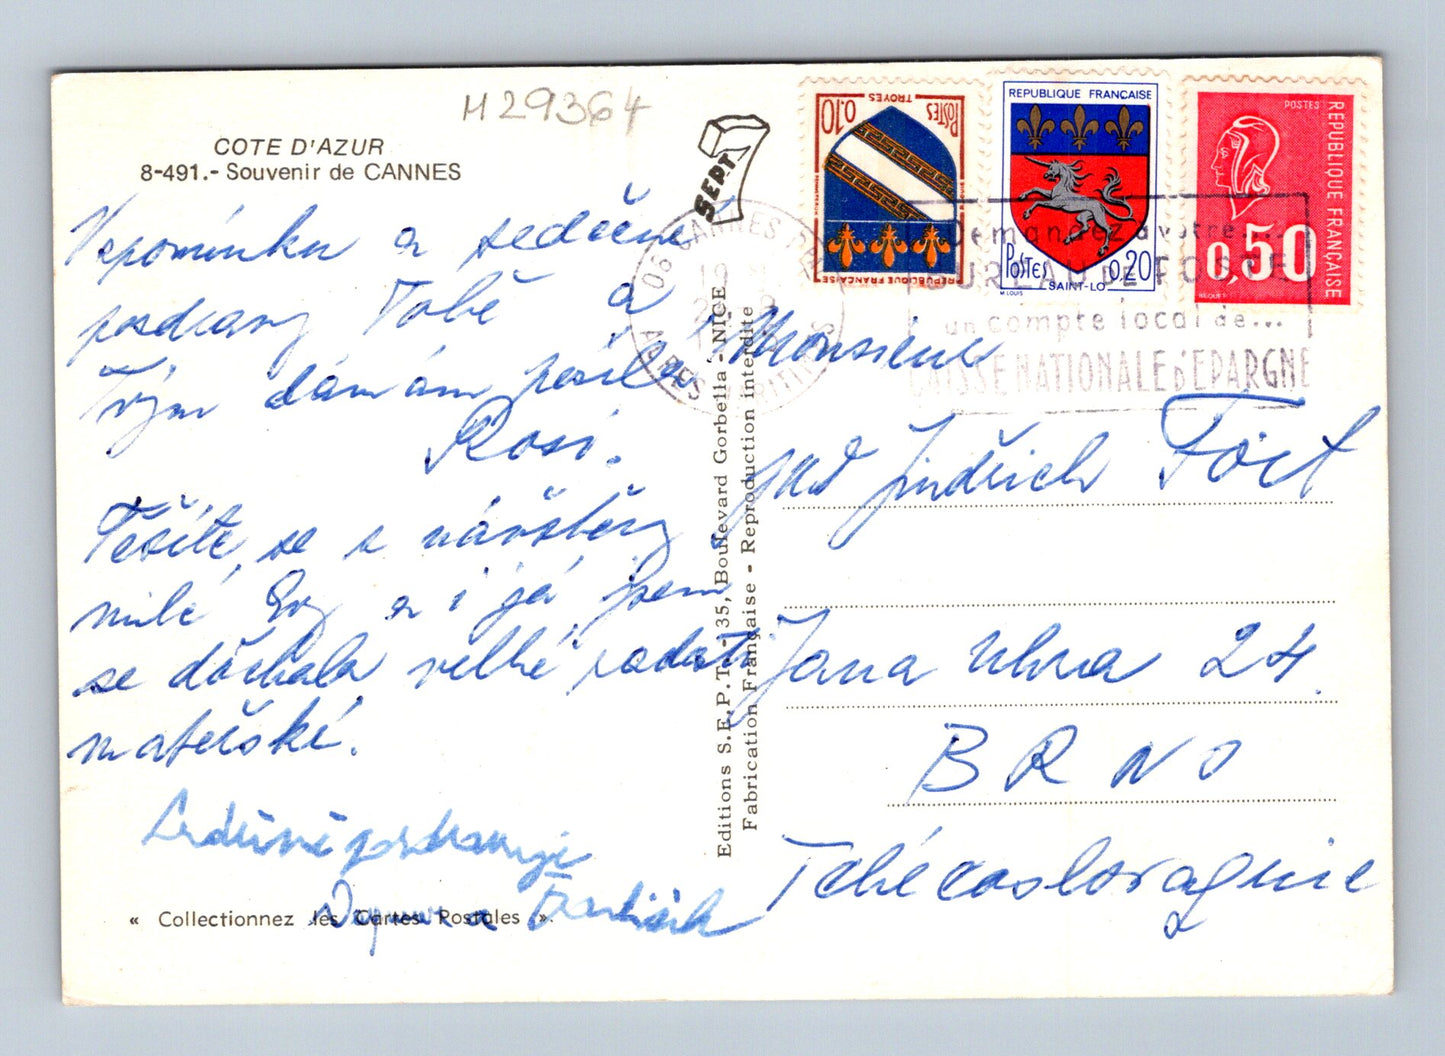 M 29364
COTE D'AZUR
8-491.- Souvenir de CANNES
Vzpomínku a srdečné
pozdravy Tobě a
Tvým dámám posílá
Rosi.
Těšíte se s návštěvy
milé Evy a i já jsem
se dočkala velké radosti
mateřské.
Srdečně pozdravuje
a František
« Collectionnez les Cartes Postales »
Editions S.E.P.T. - 35, Boulevard Gorbella - NICE
Fabrication Française - Reproduction interdite
SEPT
0,10
TROYES
POSTES
REPUBLIQUE FRANÇAISE
REPUBLIQUE FRANÇAISE
POSTES
0,20
SAINT-LO
M. LOUIS
POSTES
REPUBLIQUE FRANÇAISE
0,50
BEQUET
06 CANNES
ALPES MARITIMES
Demandez à votre...
BUREAU DE POSTE
un compte local de...
CAISSE NATIONALE D'EPARGNE
Monsieur
pan Jindřich Fört
Jana Uhra 24.
BRNO
Tchécoslovaquie